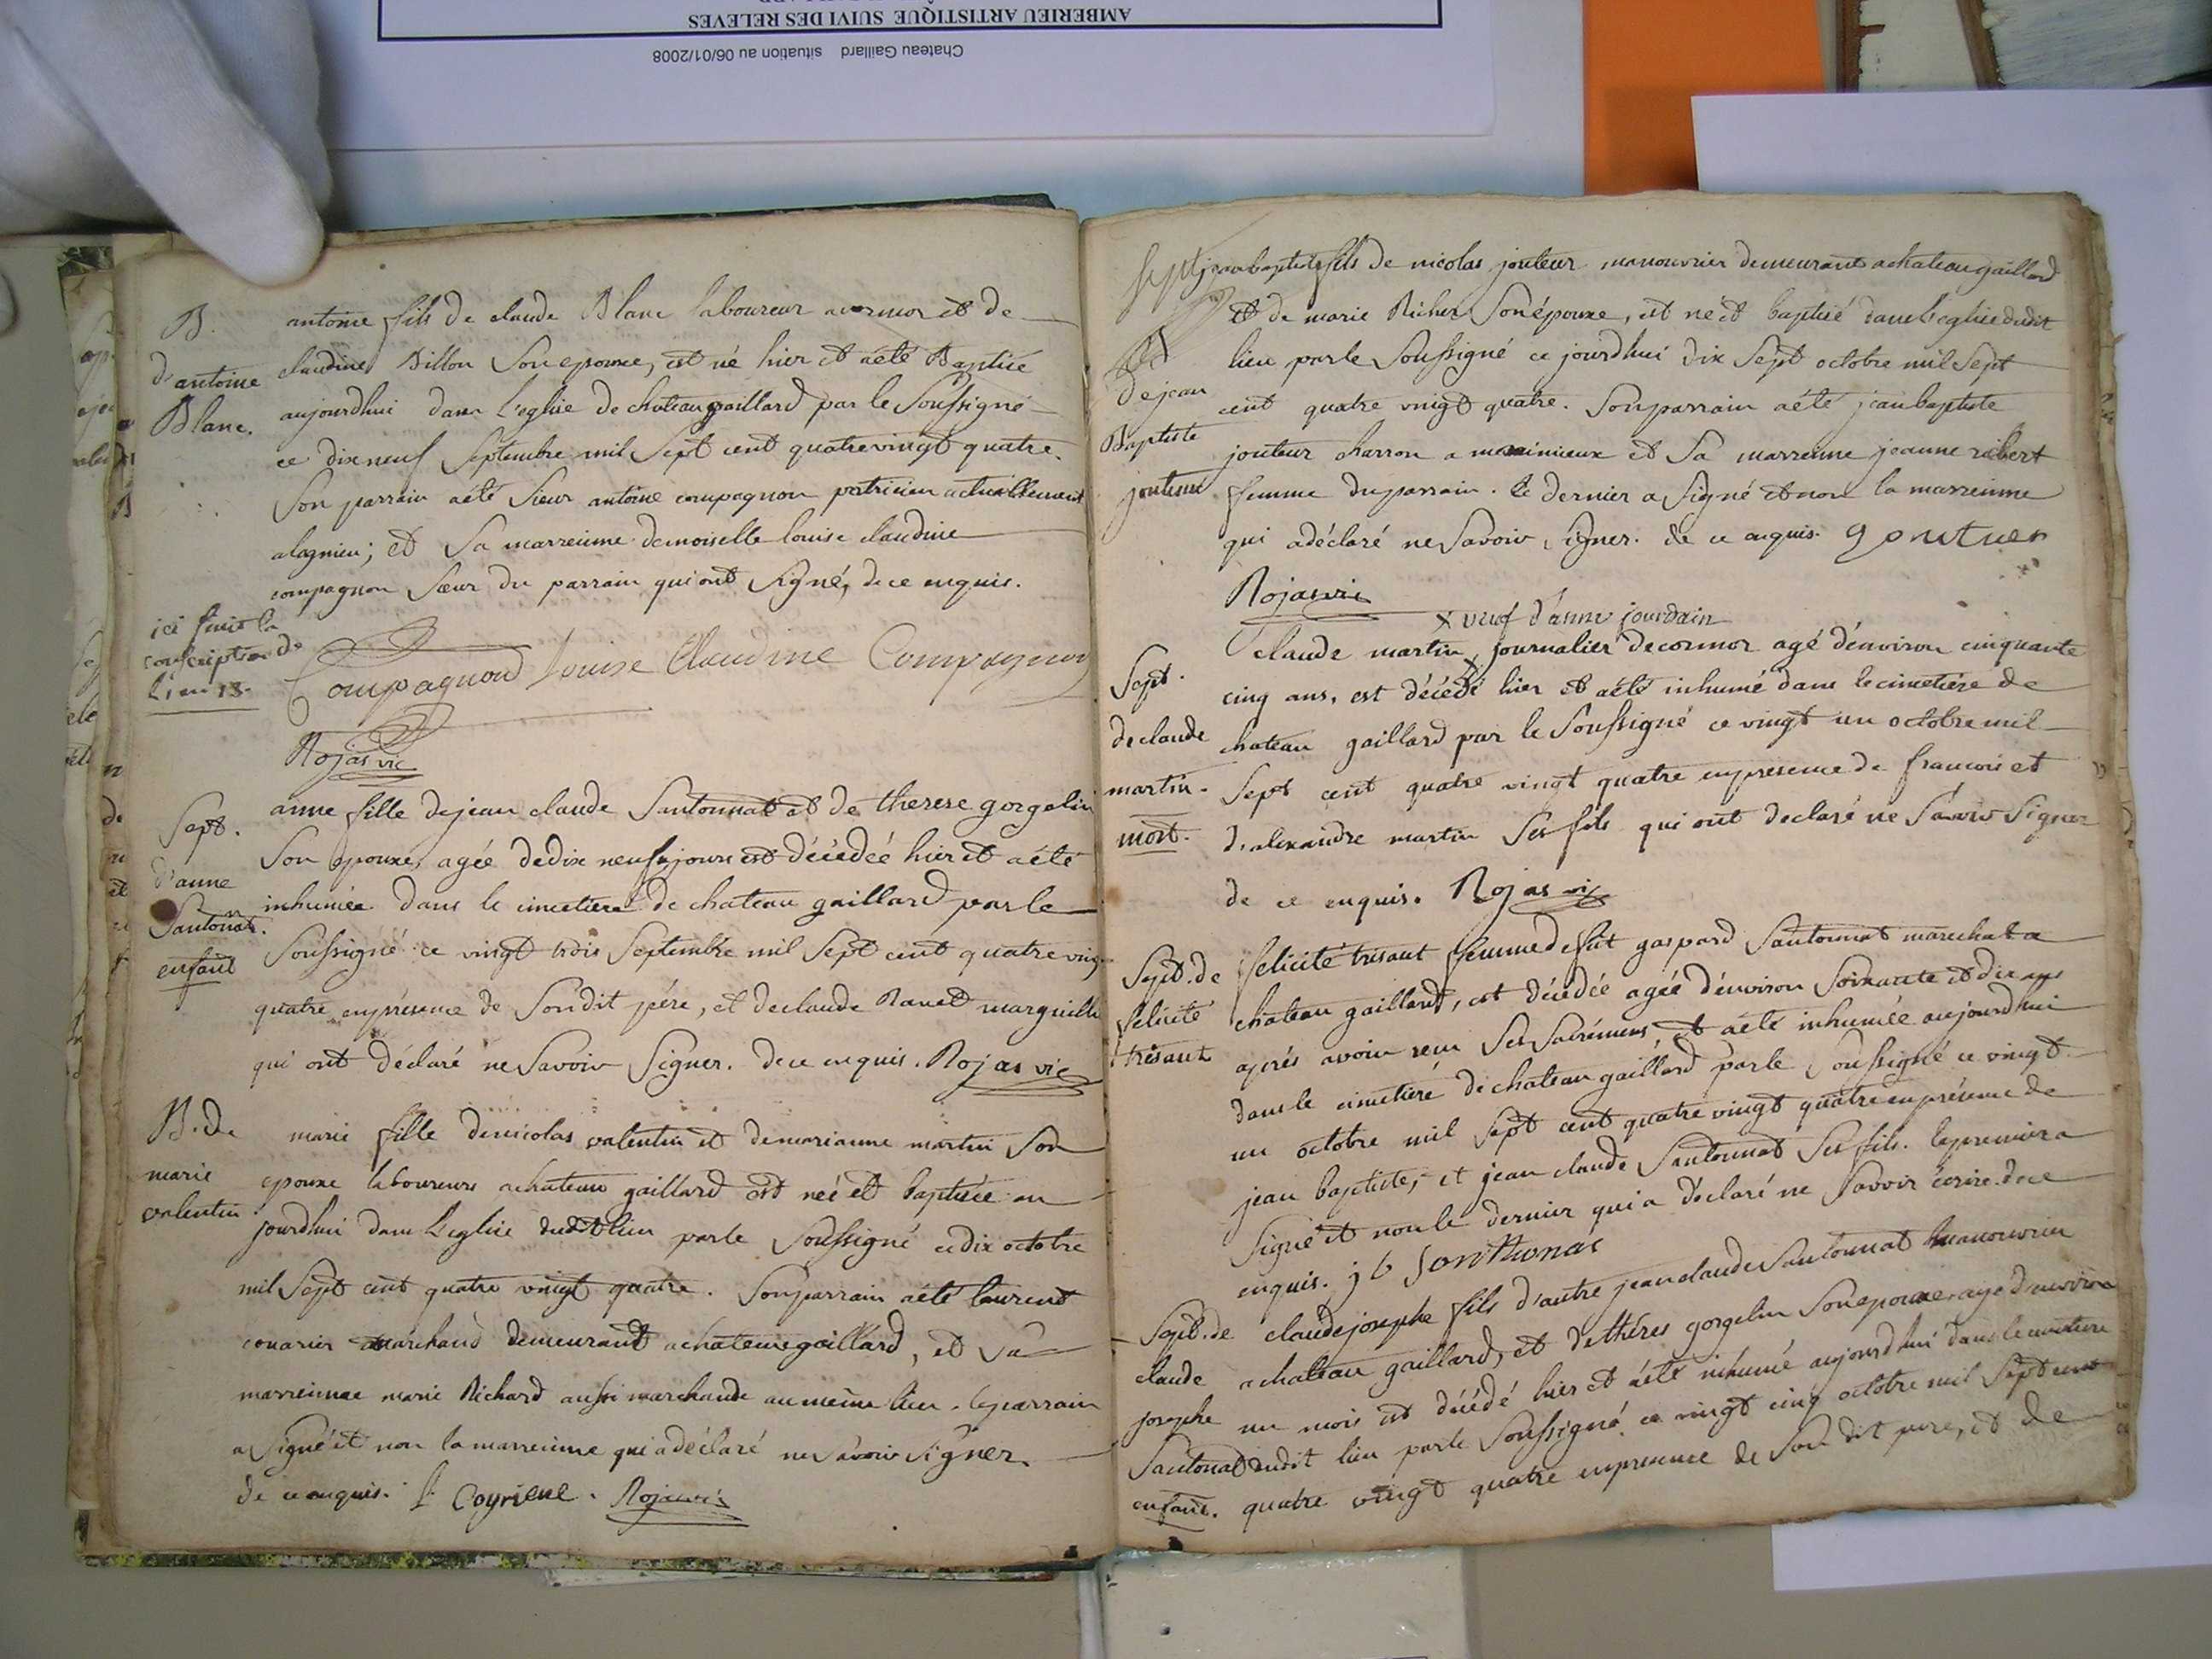 AMBERIEU ARTISTIQUE SUIVI DES RELEVES
Chateau Gaillard situation au 06/01/2008
B.
d'antoine
Blanc.
antoine fils de claude Blanc laboureur a cormor et de
claudine Billon Son epouse, est né hier et a été Baptisé
aujourdhui dans L'eglise de chateau gaillard par le Soussigné
ce dix neuf Septembre mil Sept cent quatre vingt quatre.
Son parrain a été Sieur antoine compagnon patricien actuellement
a lagnieu; et Sa marreinne demoiselle louise claudine
compagnon Sœur du parrain qui ont Signé, de ce enquis.
ici finit la
conscription de
Compagnon Louise Claudine Compagnon
Rojas vic
Sept.
d'anne
Santonat.
enfant
anne fille de jean claude Santonnat et de therese gorgelin
Son epouse, agée de dix neuf jours est décédée hier et a été
inhumée dans le cimetiere de chateau gaillard par le
Soussigné ce vingt trois Septembre mil Sept cent quatre vingt
quatre en présence de Son dit pére, et de claude Ravet marguillier
qui ont déclaré ne Savoir Signer. de ce enquis. Rojas vic
B. de
marie
valentin
marie fille de nicolas valentin et de marianne martin Son
epouse laboureurs a chateau gaillard est née et baptisée au
jourdhui dans L'eglise dudt lieu par le Soussigné ce dix octobre
mil Sept cent quatre vingt quatre. Son parrain a été laurent
marchand demeurant a chateau gaillard, et Sa
marreinne marie Richard aussi marchande au même lieu. le parrain
a Signé et non la marreinne qui a déclaré ne Savoir Signer.
de ce enquis. Rojas vic
B d
de jean
Baptiste
jouteur
jean baptiste fils de nicolas jouteur manouvrier demeurant a chateau gaillard
et de marie Richer Son épouse, est né et baptisé dans l'eglise dudit
lieu par le Soussigné ce jourdhui dix Sept octobre mil Sept
cent quatre vingt quatre. Son parrain a été jean baptiste
jouteur charron a meximieux et Sa marreinne jeanne ribert
femme du parrain. Le dernier a Signé et non la marreinne
qui a déclaré ne Savoir Signer. de ce enquis. gontuer
Rojas vic
x veuf d'anne jourdain
Sept.
de claude
martin.
mort.
claude martin x journalier de cormor agé d'environ cinquante
cinq ans, est décédé hier et a été inhumé dans le cimetiére de
chateau gaillard par le Soussigné ce vingt un octobre mil
Sept cent quatre vingt quatre en presence de francois et
d'alexandre martin Ses fils qui ont declaré ne Savoir Signer
de ce enquis. Rojas vic
Sept. de
felicité
trisaut
felicité trisaut femme de fut gaspard Santonnat marechal a
chateau gaillard, est décédée agée d'environ Soixante et dix ans
aprés avoir reçu Ses Sacrémens, et a été inhumée aujourdhui
dans le cimetiére de chateau gaillard par le Soussigné ce vingt
un octobre mil Sept cent quatre vingt quatre en présence de
jean baptiste, et jean claude Santonnat Ses fils. le premier a
Signé et non le dernier qui a déclaré ne Savoir écrire. de ce
enquis. j b Sonthonas
Sept. de
claude
josephe
Santonat
enfant.
claude josephe fils d'autre jean claude Santonnat manouvrier
a chateau gaillard, et de théres gorgelin Son epouse, agé d'environ
un mois est décédé hier et a été inhumé aujourdhui dans le cimetiere
dudit lieu par le Soussigné ce vingt cinq octobre mil Sept cent
quatre vingt quatre en presence de Son dit pere, et de